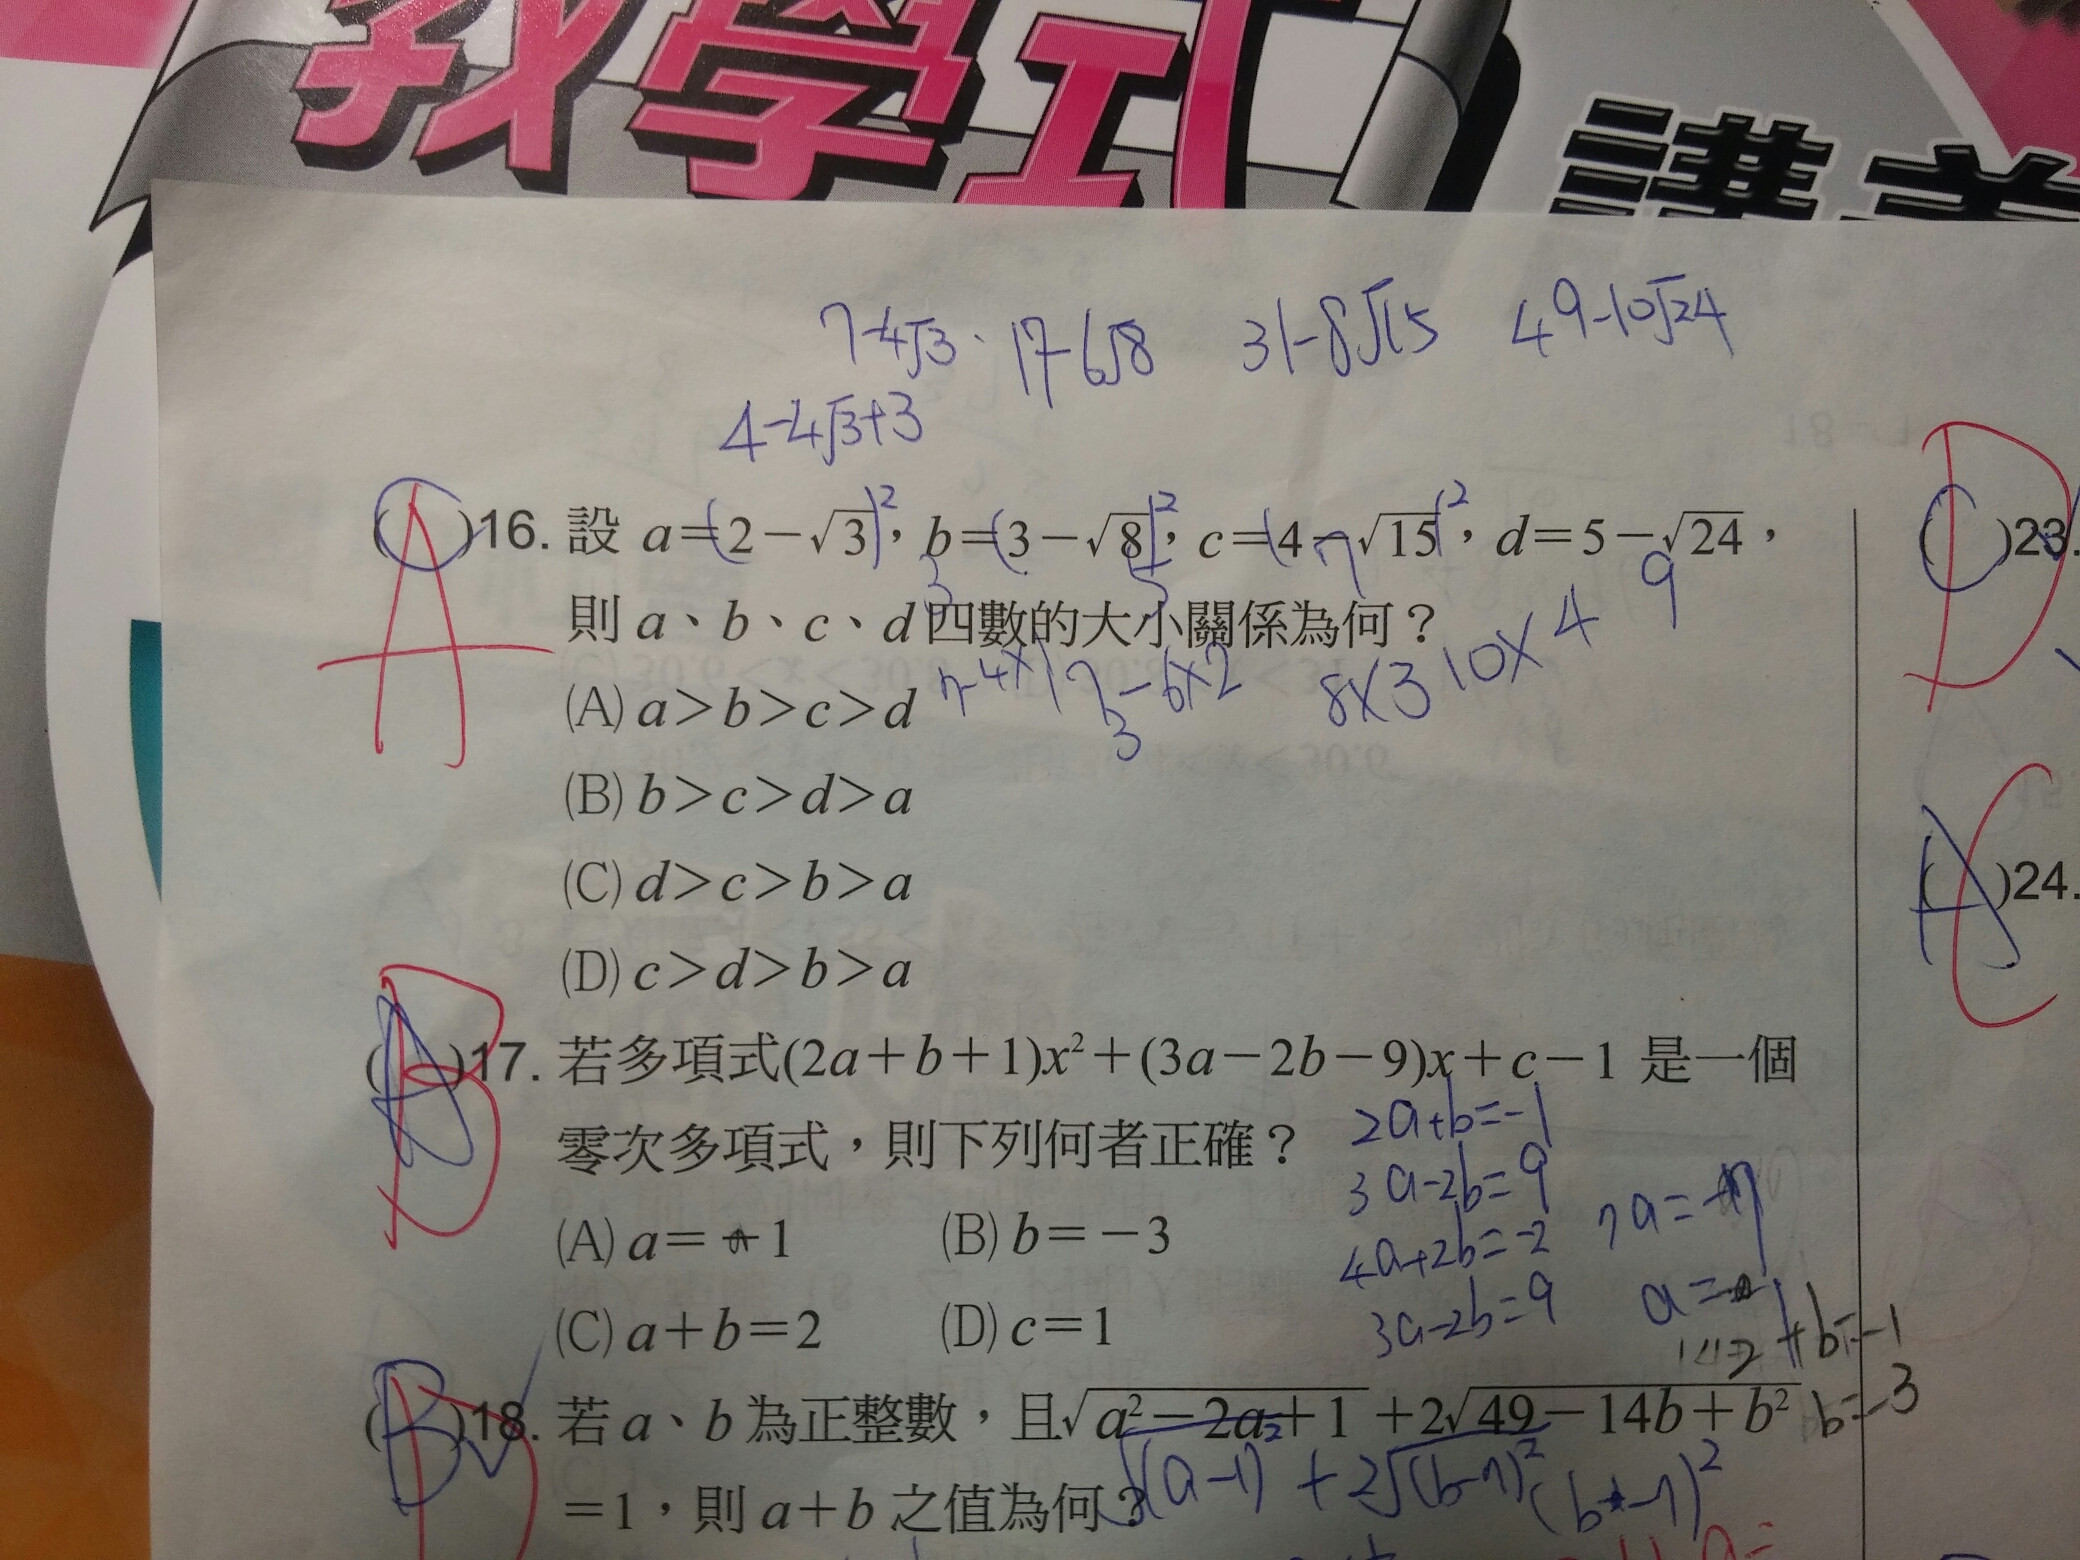 教學式講義
7-4√3 17-6√8 31-8√15 49-10√24
4-4√3+3
( A )16. 設 a=(2-√3)², b=(3-√8)², c=(4-√15)², d=5-√24,
則 a、b、c、d 四數的大小關係為何?
(A) a>b>c>d 7-4×1 17-6×2 8×3 10×4 9
(B) b>c>d>a
(C) d>c>b>a
(D) c>d>b>a
( B )17. 若多項式(2a+b+1)x²+(3a-2b-9)x+c-1 是一個
零次多項式,則下列何者正確?
2a+b=-1
3a-2b=9
4a+2b=-2
3a-2b=9
7a=7
(A) a=-1 (B) b=-3
(C) a+b=2 (D) c=1
+b=-1
b=-3
( )18. 若 a、b 為正整數,且√a²-2a+1 +2√49-14b+b²
=1,則 a+b 之值為何?
√(a-1)²+2√(b-7)² (b-7)²
D
( )23.
A C
( )24.